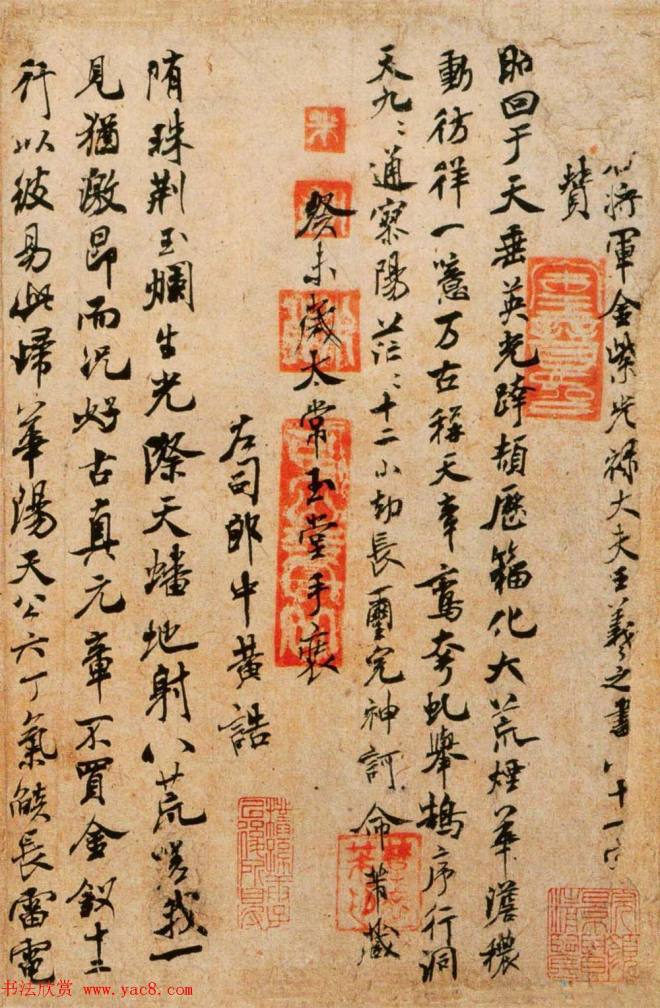 右將軍金紫光祿大夫王羲之書八十一字
贊
昭回于天垂英光跨頡歷籀化大荒煙華澹穠
動彷徉一噫万古稱天章鸞夸虬舉鵠序行洞
天九〻通寥陽茫〻十二小劫長璽完神訶命芾藏
癸未歲太常玉堂手裝
右司郎中黃誥
隋珠荆玉爛生光際天蟠地射八荒嗟我一
見猶激昂而況好古真元章不買金釵十二
行以彼易此歸華陽天公六丁氣燄長雷電
米
书法欣赏 www.yac8.com